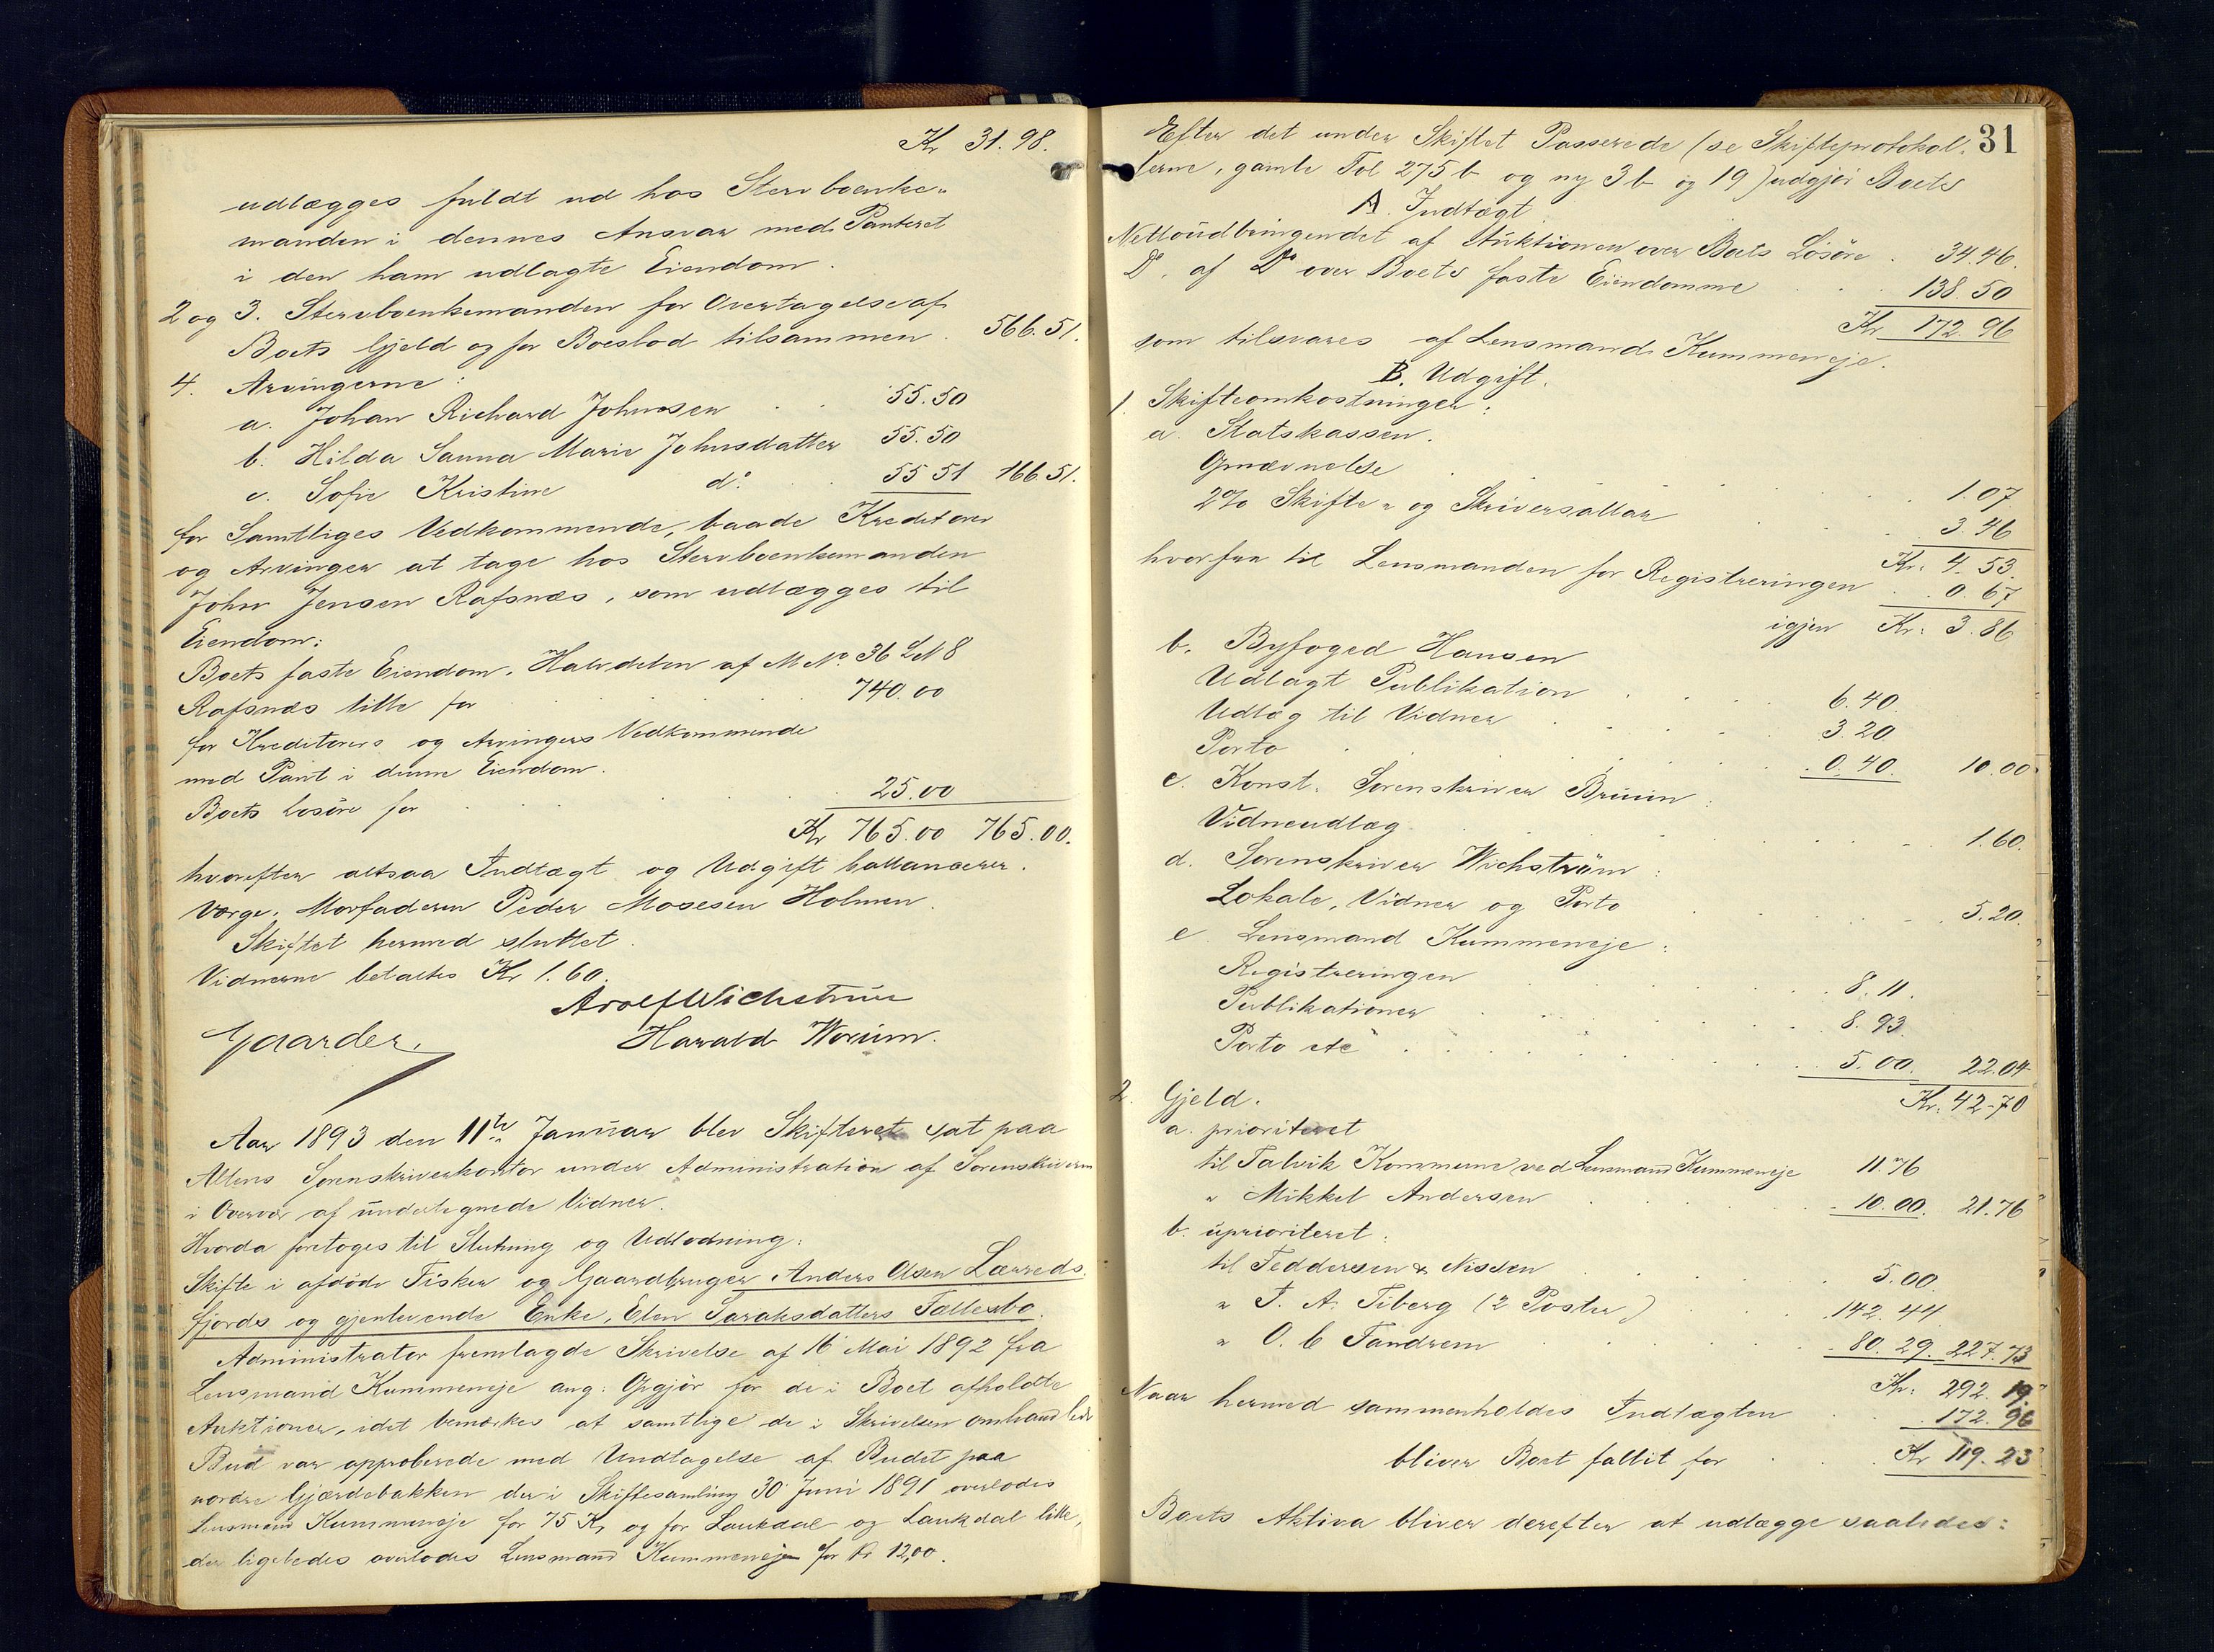 Kr 31.98.
udlægges fuldt ud hos Stervboenke„
manden i dennes Ansvar med Panteret
i den ham udlagte Eiendom.
2 og 3. Stervboenkemanden for Overtagelse af
Boets Gjeld og for Boeslod tilsammen . 566.51.
4. Arvingerne:
a. Johan Richard Johnsen . . 55.50
b. Hilda Sanna Marie Johnsdatter 55.50
c. Sofie Kristine do. . 55 51 166.51.
for Samtliges Vedkommende, baade Kreditorer
og Arvinger at tage hos Stervboenkemanden
John Jensen Rafsnæs, som udlægges til
Eiendom:
Boets faste Eiendom, Halvdelen af M No. 36 L N 8
Rafsnæs lille for . . . 740.00
for Kreditorers og Arvingers Vedkommende
med Pant i denne Eiendom.
Boets Løsøre for . . . 25.00
Kr 765.00 765.00.
hvorefter altsaa Indtægt og Udgift ballancerer.
Værge: Morfaderen Peder Mosesen Holmen.
Skiftet hermed sluttet.
Vidnerne betaltes Kr 1.60.
Arolf Wichstrøm
Gaarder. Harald Worum.
Aar 1893 den 11te Januar blev Skifteret sat paa
Altens Sorenskriverkontor under Administration af Sorenskriveren
i Overvær af undertegnede Vidner.
Hvorda foretoges til Slutning og Udlodning:
Skifte i afdøde Fisker og Gaardbruger Anders Olsen Lærreds„
fjords og gjenlevende Enke, Elen Saraksdatters Fællesbo.
Administrator fremlagde Skrivelse af 16 Mai 1892 fra
Lensmand Kummeneje ang: Opgjør for de i Boet afholdte
Auktioner, idet bemærkes at samtlige de i Skrivelsen omhandlede
Bud var approberede med Undtagelse af Budet paa
nordre Gjærdebakken der i Skiftesamling 30 Juni 1891 overlodes
Lensmand Kummeneje for 75 Kr og for Laukdal og Laukdal lille,
der ligeledes overlodes Lensmand Kummeneje for Kr 12,00.
31
Efter det under Skiftet Passerede (se Skifteprotokol„
lerne, gamle Fol 275 b og ny 3 b og 19) udgjør Boets
A. Indtægt
Nettoudbringendet af Auktionen over Boets Løsøre . 34.46.
Do. af Do over Boets faste Eiendomme . . . 138.50
Kr 172.96
som tilsvares af Lensmand Kummeneje.
B. Udgift.
1. Skifteomkostninger:
a. Statskassen.
Opnævnelse . . . 1.07
2% Skifte„ og Skriversallar . . . 3.46
Kr: 4.53.
hvorfra til Lensmanden for Registreringen . . 0.67
igjen Kr: 3.86
b. Byfoged Hansen
Udlagt Publikation . . . 6.40.
Udlæg til Vidner . . . 3.20
Porto . . . 0.40. 10.00.
c. Konst. Sorenskriver Bruun:
Vidneudlæg . . . 1.60.
d. Sorenskriver Wichstrøm:
Lokale, Vidner og Porto . . . 5.20.
e Lensmand Kummeneje:
Registreringen . . . 8.11.
Publikationer . . . 8.93
Porto etc . . . 5.00. 22.04
Kr. 42-70
2. Gjeld.
a. prioriteret
til Talvik Kommune ved Lensmand Kummeneje 11.76
„ Mikkel Andersen . . . 10.00. 21.76
b. uprioriteret:
til Feddersen & Nissen . . . 5.00.
„ J. A. Tiberg (2 Poster) . . 142.44
„ O. C Tandrem . . . 80.29. 227.73
Kr: 292.19.
Naar hermed sammenholdes Indtægten . . 172.96
bliver Boet fallit for . . Kr 119.23
Boets Aktiva bliver derefter at udlægge saaledes: